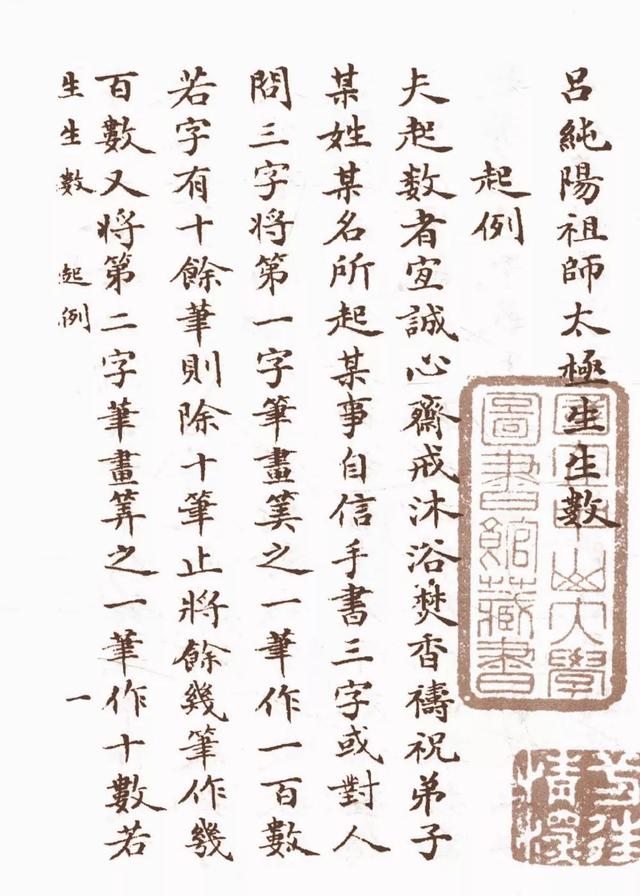 呂純陽祖師太極生生數
起例
夫起數者宜誠心齋戒沐浴焚香禱祝弟子
某姓某名所起某事自信手書三字或對人
問三字將第一字筆畫筭之一筆作一百數
若字有十餘筆則除十筆止將餘幾筆作幾
百數又將第二字筆畫筭之一筆作十數若
生生數 起例 一
國立中山大學
圖書館藏書